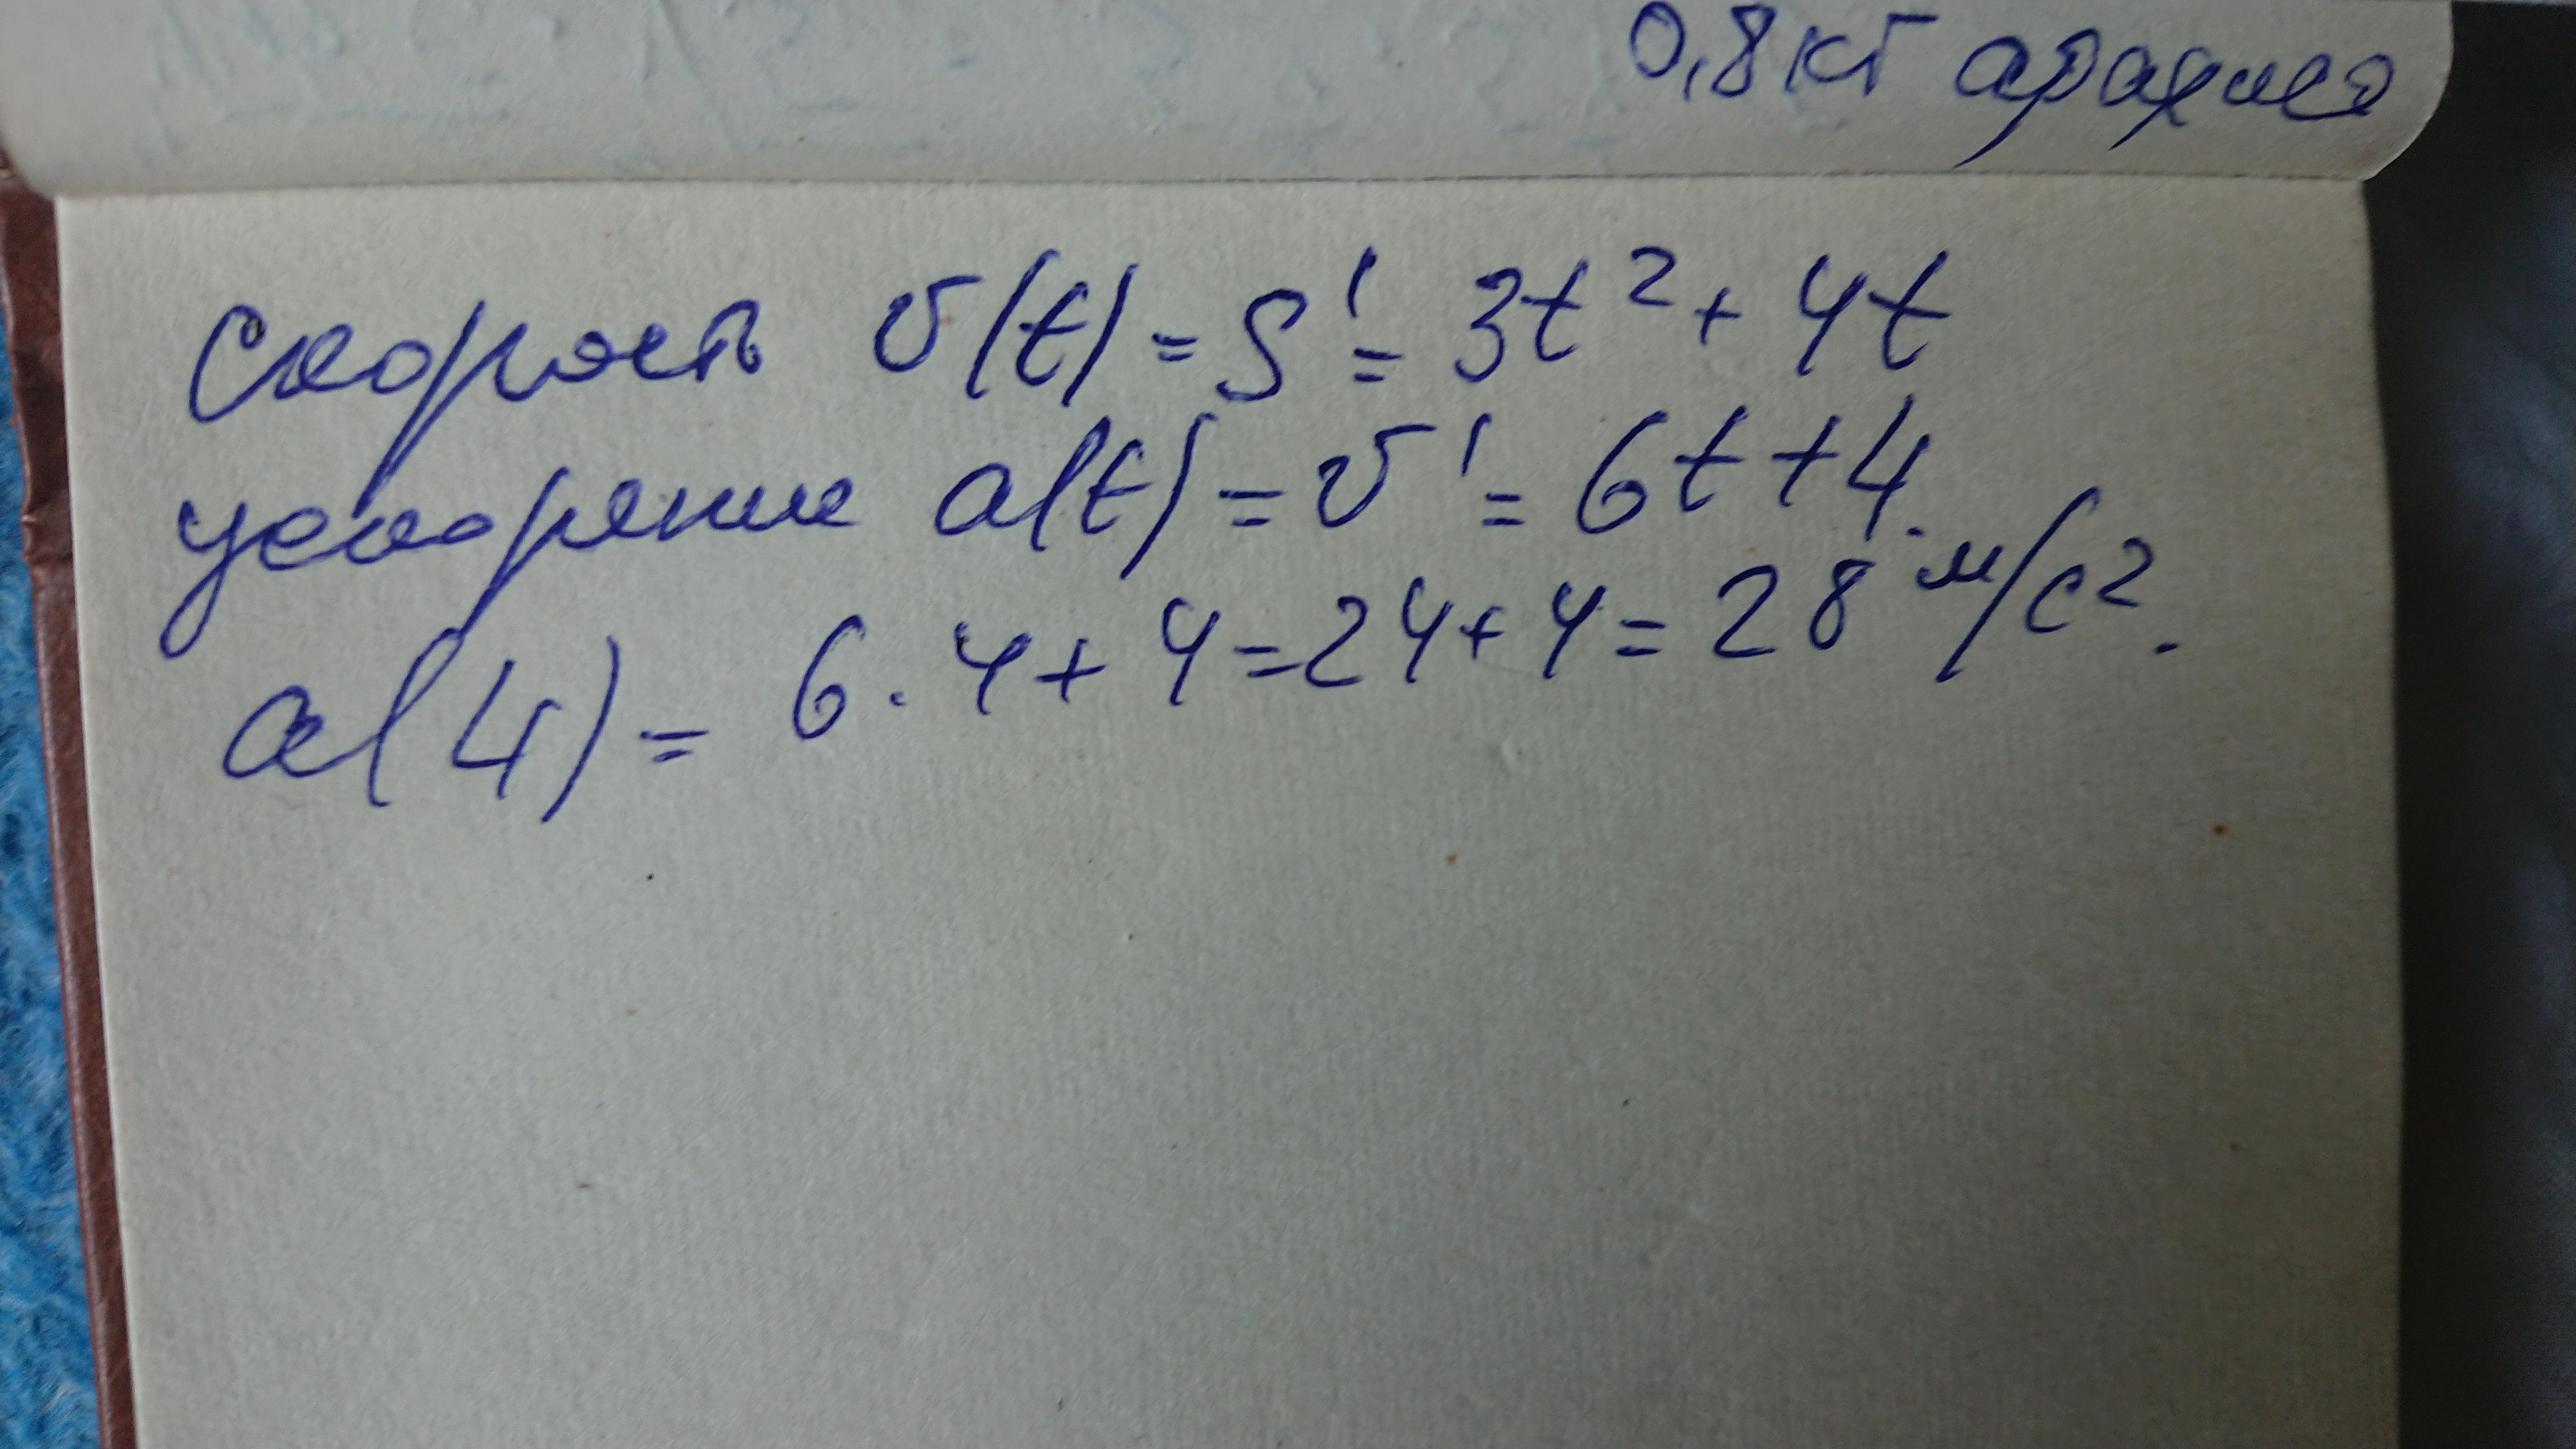 0,8 кг арахиса
скорость v(t) = S' = 3t² + 4t
ускорение a(t) = v' = 6t + 4.
a(4) = 6 · 4 + 4 = 24 + 4 = 28 м/с².